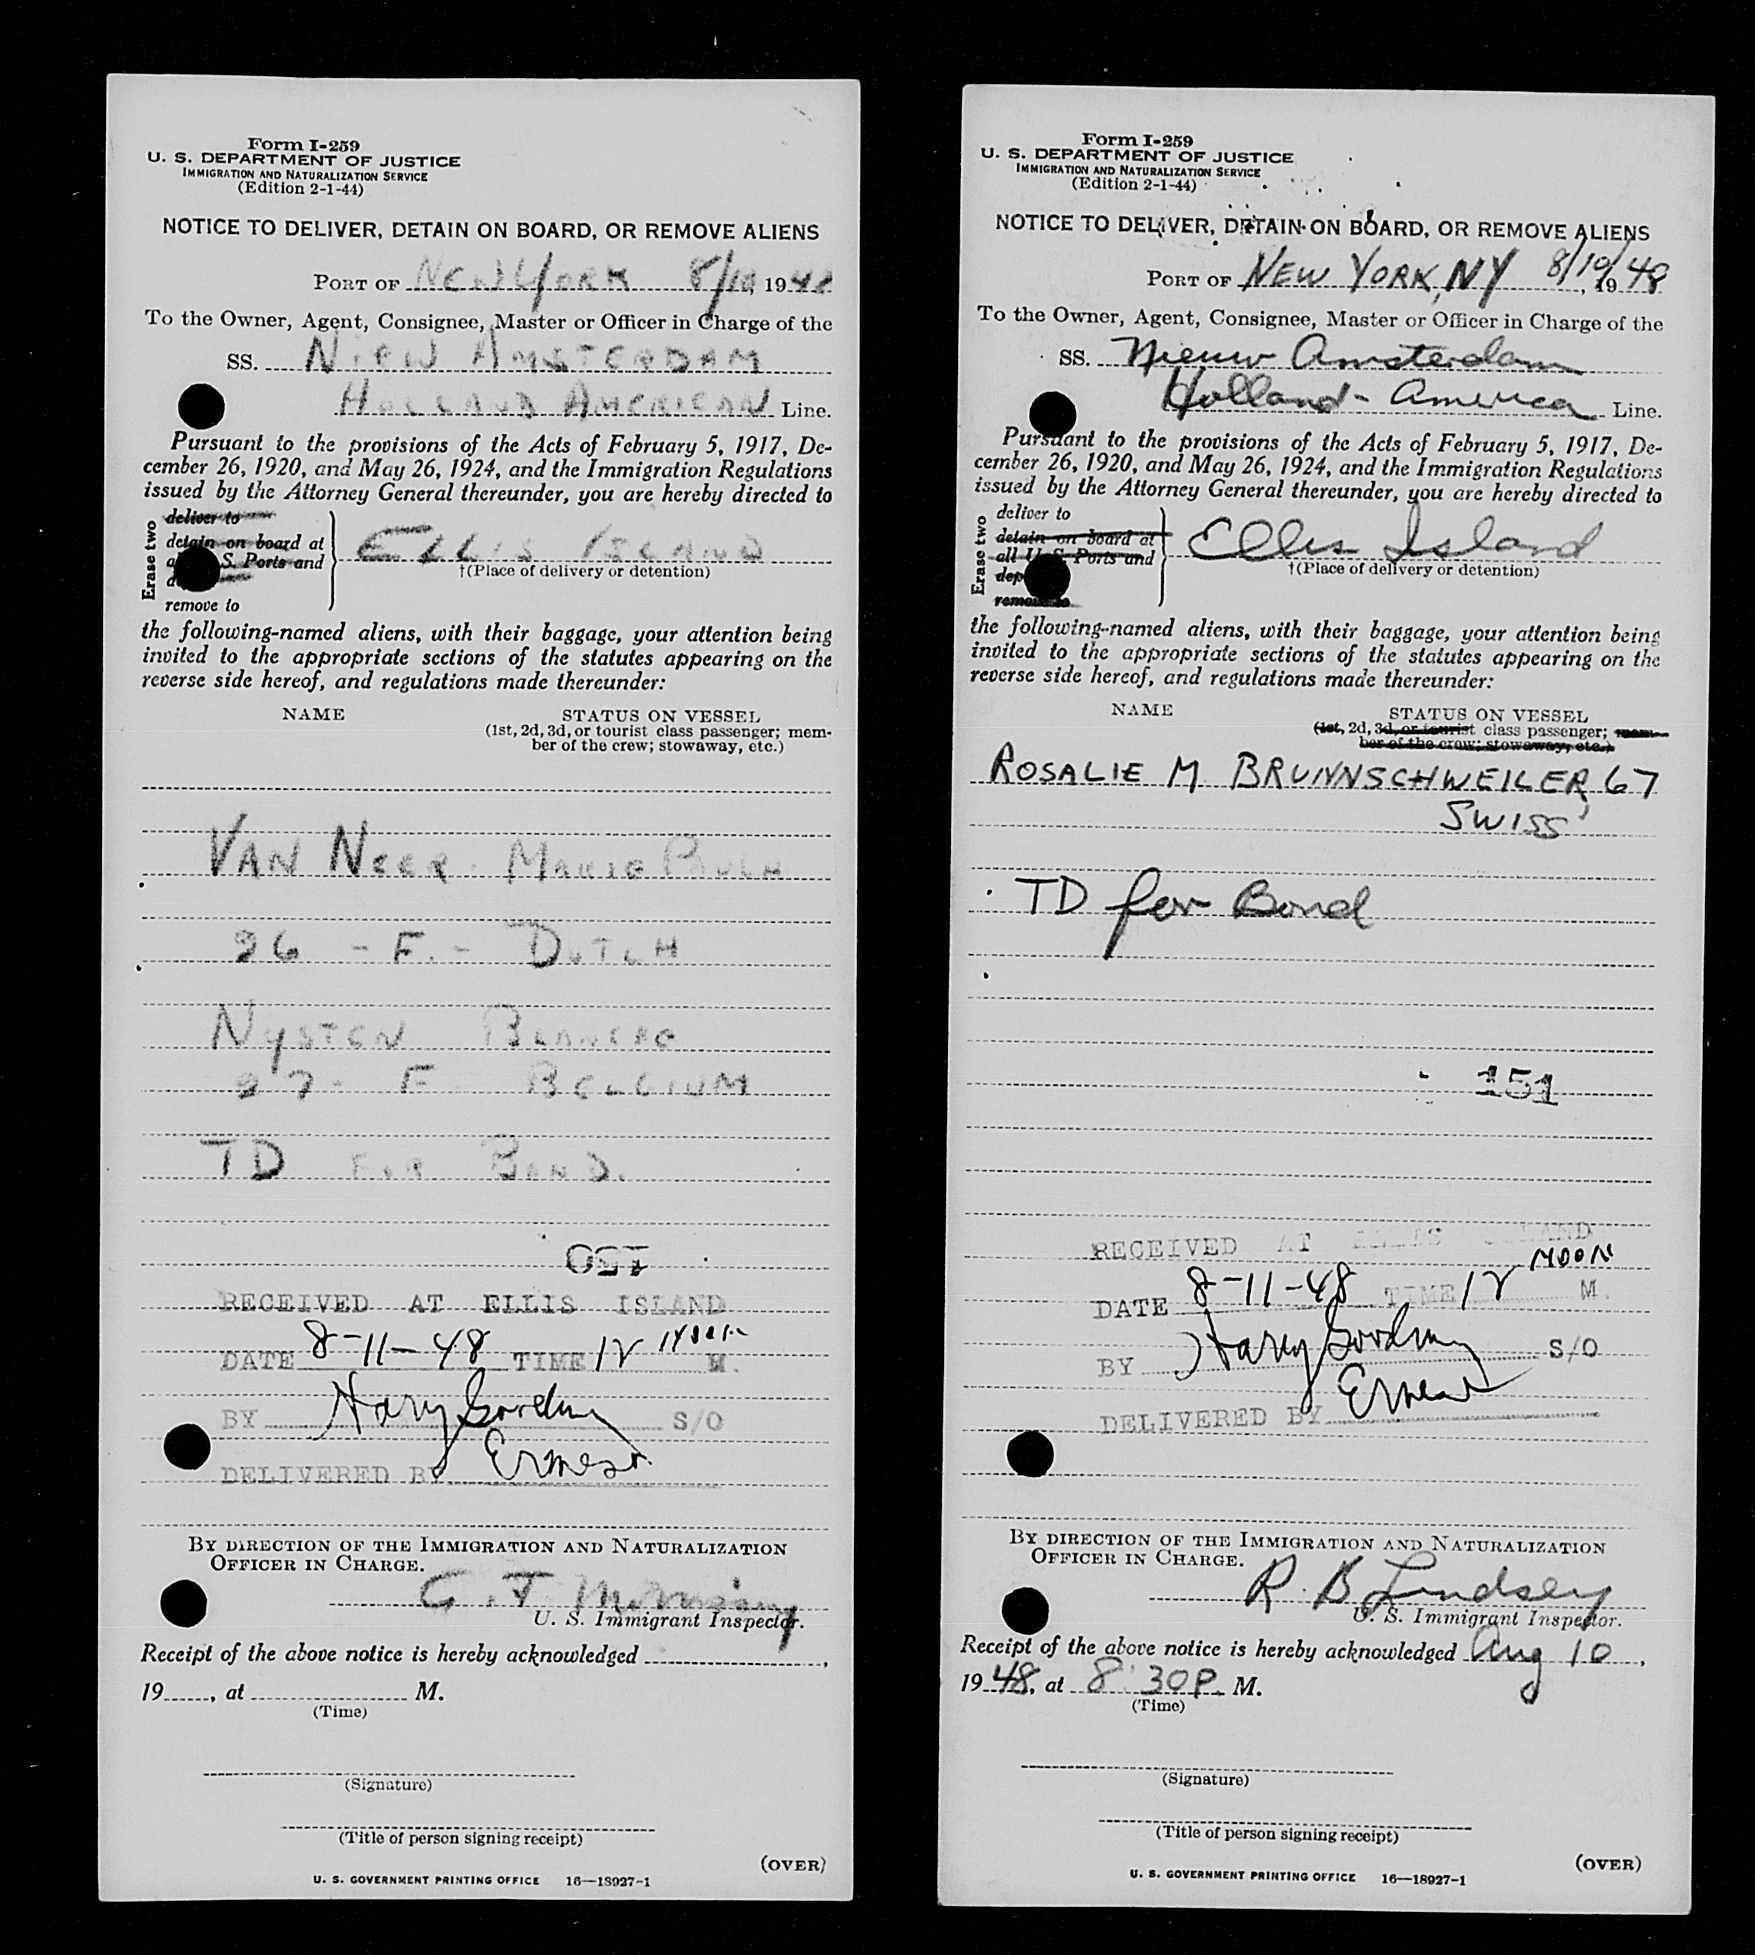 Form I-259
U. S. DEPARTMENT OF JUSTICE
IMMIGRATION AND NATURALIZATION SERVICE
(Edition 2-1-44)
NOTICE TO DELIVER, DETAIN ON BOARD, OR REMOVE ALIENS
PORT OF NEW YORK 8/10, 1948
To the Owner, Agent, Consignee, Master or Officer in Charge of the
SS. NIEW AMSTERDAM
HOLLAND AMERICAN Line.
Pursuant to the provisions of the Acts of February 5, 1917, De-
cember 26, 1920, and May 26, 1924, and the Immigration Regulations
issued by the Attorney General thereunder, you are hereby directed to
Erase two
deliver to
detain on board at
S. Ports and
remove to
ELLIS ISLAND
†(Place of delivery or detention)
the following-named aliens, with their baggage, your attention being
invited to the appropriate sections of the statutes appearing on the
reverse side hereof, and regulations made thereunder:
NAME STATUS ON VESSEL
(1st, 2d, 3d, or tourist class passenger; mem-
ber of the crew; stowaway, etc.)
VAN NEER MARIE PAULA
26 - F. - DUTCH
NYSTEN BLANCHE
27 - F BELGIUM
TD FOR BOND.
150
RECEIVED AT ELLIS ISLAND
DATE 8-11-48 TIME 12 NOON M.
BY Harry Gooding S/O
DELIVERED BY Ernest
BY DIRECTION OF THE IMMIGRATION AND NATURALIZATION
OFFICER IN CHARGE.
G. T.
U. S. Immigrant Inspector.
Receipt of the above notice is hereby acknowledged ,
19 , at M.
(Time)
(Signature)
(Title of person signing receipt)
(OVER)
U. S. GOVERNMENT PRINTING OFFICE 16—18927-1
Form I-259
U. S. DEPARTMENT OF JUSTICE
IMMIGRATION AND NATURALIZATION SERVICE
(Edition 2-1-44)
NOTICE TO DELIVER, DETAIN ON BOARD, OR REMOVE ALIENS
PORT OF NEW YORK, NY 8/10/, 1948
To the Owner, Agent, Consignee, Master or Officer in Charge of the
SS. Nieuw Amsterdam
Holland-America Line.
Pursuant to the provisions of the Acts of February 5, 1917, De-
cember 26, 1920, and May 26, 1924, and the Immigration Regulations
issued by the Attorney General thereunder, you are hereby directed to
Erase two
deliver to
detain on board at
all U. S. Ports and
dep
remove to
Ellis Island
†(Place of delivery or detention)
the following-named aliens, with their baggage, your attention being
invited to the appropriate sections of the statutes appearing on the
reverse side hereof, and regulations made thereunder:
NAME STATUS ON VESSEL
(1st, 2d, 3d, or tourist class passenger; mem-
ber of the crew; stowaway, etc.)
ROSALIE M. BRUNNSCHWEILER, 67
SWISS
TD for Bond
151
RECEIVED AT ELLIS ISLAND
DATE 8-11-48 TIME 12 NOON M.
BY Harry Gooding S/O
DELIVERED BY Ernest
BY DIRECTION OF THE IMMIGRATION AND NATURALIZATION
OFFICER IN CHARGE.
R. B Lindsey
U. S. Immigrant Inspector.
Receipt of the above notice is hereby acknowledged Aug 10 ,
1948, at 8:30 P. M.
(Time)
(Signature)
(Title of person signing receipt)
(OVER)
U. S. GOVERNMENT PRINTING OFFICE 16—18927-1